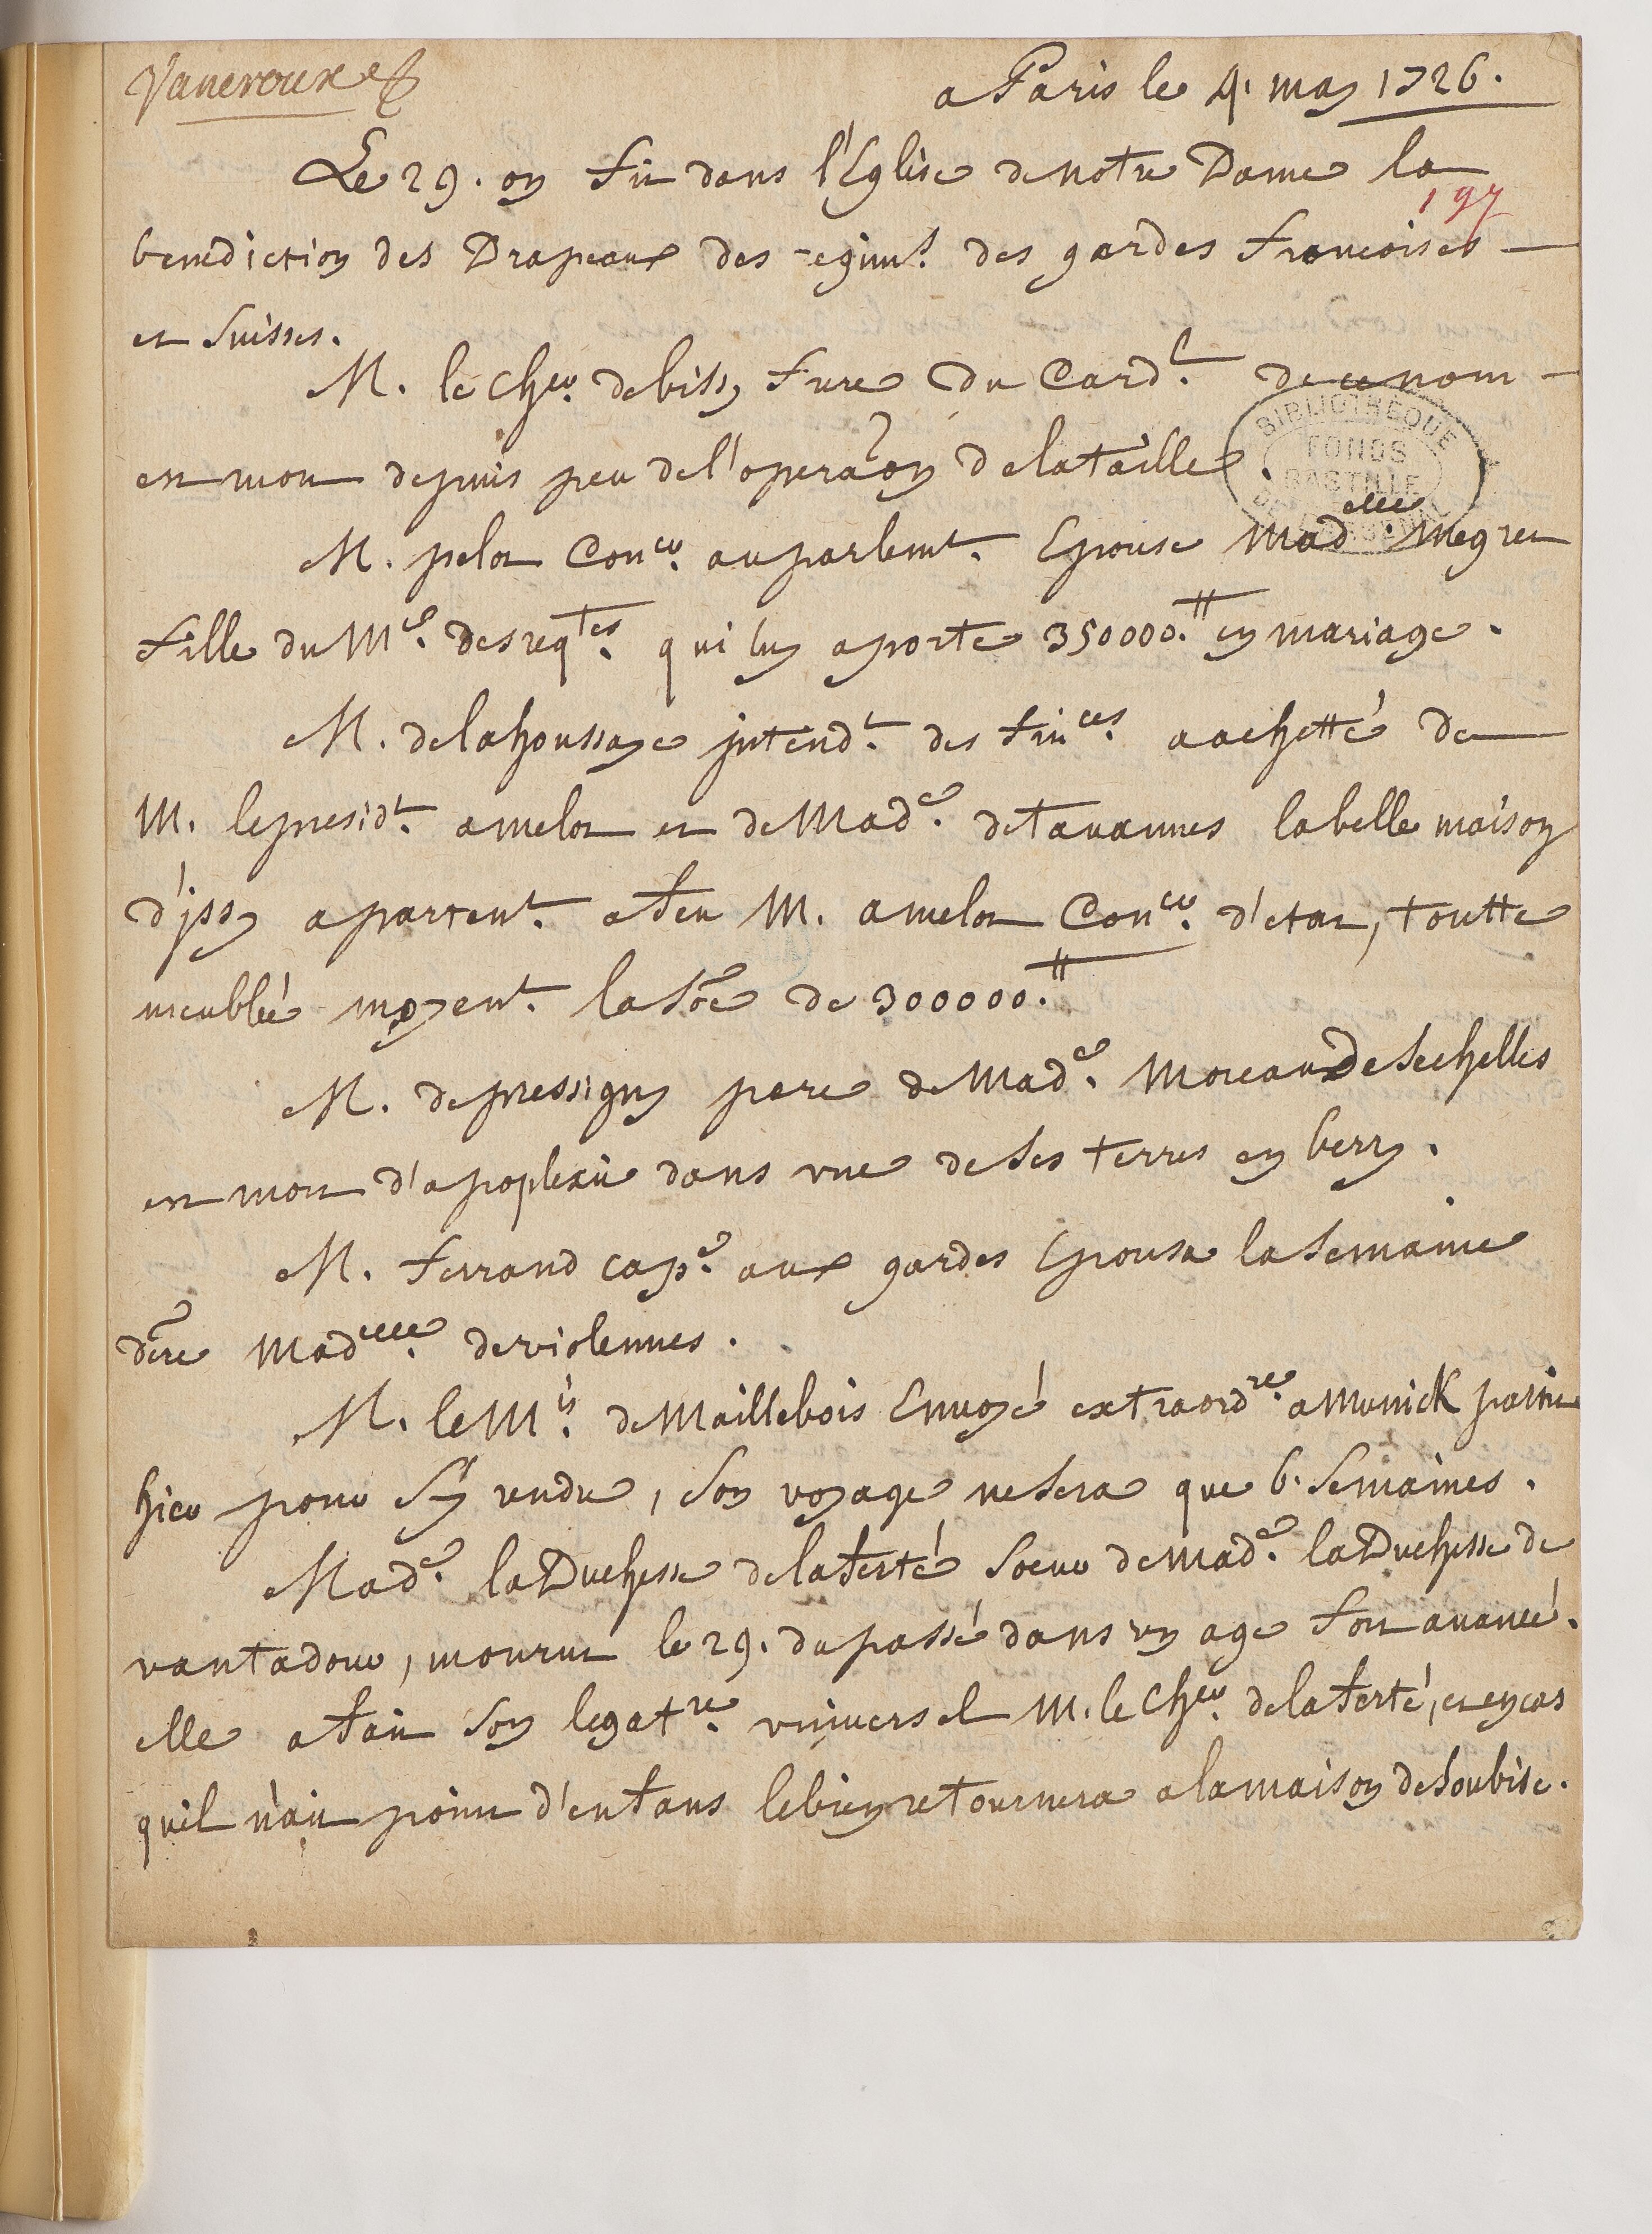 Vaneroux
a Paris le 4. may 1726.
Le 29. on fit dans l'Eglise de notre Dame la
197
benediction des Drapeaux des regimt. des gardes francoises
et Suisses.
M. le Cher. de bissy frere du Cardl. de ce nom
est mort depuis peu de l'opera͠on de la taille.
BIBLIOTHEQUE
FONDS
BASTILLE
M. pelot Coner. au parlemt. Epouse Madelle. Megret
fille du Me. des reqtes. qui luy aporte 350000.tt en mariage.
M. de la houssaye jntendt. des finces. a achetté de
M. le presidt. amelot et de Made. de tavannes la belle maison
d'jssy apartent. a feu M. amelot Coner. d'etat, toutte
meublée moyent. la so͠e de 300000.tt
M. de pressigny pere de Made. Moreau de Sechelles
est mort d'apoplexie dans vne de Ses terres en berry.
M. ferrand cape. aux gardes Epousa la Semaine
de͠re Madelle. de violennes.
M. le Mis. de Maillebois Envoyé extraordre. a Munick partit
hier pour S'y rendre, Son voyage ne Sera que 6. Semaines.
Made. la Duchesse de la ferté Soeur de Made. la Duchesse de
vantadour, mourut le 29. du passé dans vn age fort avancé.
elle a fait Son legatre. vniversel M. le Cher. de la ferté, et en cas
quil n'ait point d'enfans le bien retournera a la maison de Soubise.